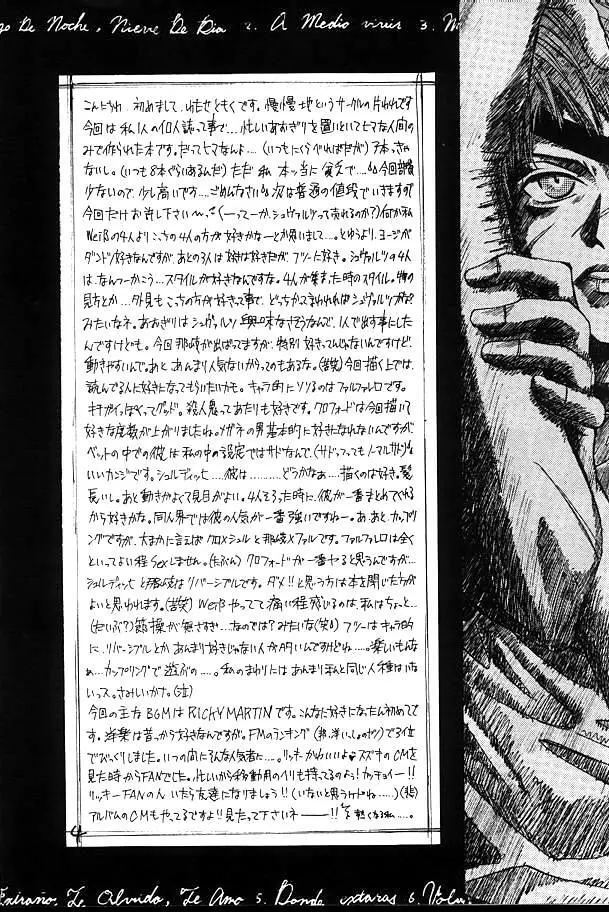 go De Noche, Nieve De Dia 2. A Medio vivir 3. M
こんにちわ、初めまして、ともくです。慢慢地というサークルの片われです
今回は私1人の個人誌って事で…忙しいあおぎりを置いといてヒマな人間の
みで作られた本です。だってヒマなんよ…(いつもにくらべればだが)7本しか
ないし。(いつも8本ぐらいあるんだ)ただ 私 本っ当に貧乏で…今回部数
少ないので、少し高いです…ごめんなさい 次は普通の値段でいきますので
今回だけお許し下さい〜(一ってーか、シュヴァルツって売れるのか?)何か私
Weißの4人よりこっちの4人の方が好きかなーとか思いまして…とゆうより、ヨージが
ダントツ好きなんですが、あとの3人は好きだが、フツーに好き。シュヴァルツの4人
は、なんつーかこう…スタイルが好きなんですな。4人が集まった時のスタイル。物の
見方とか…外見も こっちの方が好きって事で、どっちかってまわれればシュヴァルツかな
みたいなネ。あおぎりはシュヴァルツ興味なさそうなんで、1人で出す事にした
んですけども。今回那岐が出ばってますが、特別好きってんじゃないんですけど
動きやすいんで。あと、あんまり人気ないからってのもあるな。(苦笑)今回描く上では、
読んでる人に好きになってもらいたいかも。キャラ的にソソるのはファルファレロです。
キチガイっぽくってグッド。殺人鬼ってあたりも好きです。クロフォードは今回描いて
好きな度数が上がりましたね。メガネの男基本的に好きになれないんですが
ベットの中での彼は 私の中の設定ではサドなんで、(サドっつってもノーマルサド)
いいカンジです。シュルディッヒ…彼は………どうかなぁ…描くのは好き。髪
長いし。あと動きがよくて見目がよい。4人そろった時に、彼が一番まとめてくれる
から好きかな。同人界では彼の人気が一番強いですねー。あ、あと、カップリ
ングですが、大まかに言えばクロ×シュルと那岐×ファルです。ファルファレロは全く
といってよい程Sexしません。(たぶん)クロフォードが一番ヤると思うんですが…
シュルディッヒと那岐はリバーシブルです。ダメ!!と思う方は本を閉じた方が
よいと思われます。(苦笑)Weißやってて痛い程感じるのは、私はちょっと…
(だいぶ?)節操が無さすぎ…なのでは?みたいな(笑)フツーはキャラ的
に、リバーシブルとか、あんまり好きじゃない人が多いんですけどね…。楽しいもんな
ぁ…カップリングで遊ぶの…。私のまわりには あんまり私と同じ人種はいな
いっス。さみしいかな。(泣)
今回の主な BGMは RICKY MARTINです。こんなに好きになったん初めてて
す。洋楽は昔っから好きなんですが。FMのランキング(洋)で3位
でびっくりしました。いつの間にそんな人気者に…。リッキーかわいいよ♥スズキのCMを
見た時からFANでした。忙しいから移動用のヘリも持ってるのよぅ!カッチョイー!!
リッキーFANの人 いたら友達になりましょう!!(いないと思うケドね……)(悲)
アルバムのCMもやってるですよ!!見たって下さいネ――!! 熱くなる私…。
4
Extraño. Te Olvido, Te Amo 5. Donde estaras 6. Volv